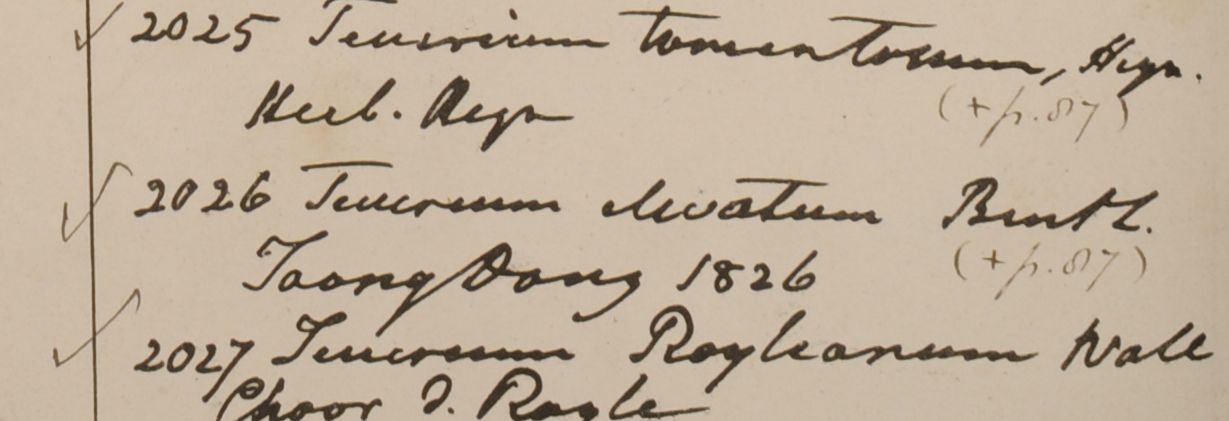 2025 Teucrium tomentosum, Heyn.
Herb. Heyn
(+ p. 87)
2026 Teucrium clivatum Benth.
Taong Dong 1826
(+ p. 87)
2027 Teucrium Royleanum Wall
Choor D. Royle